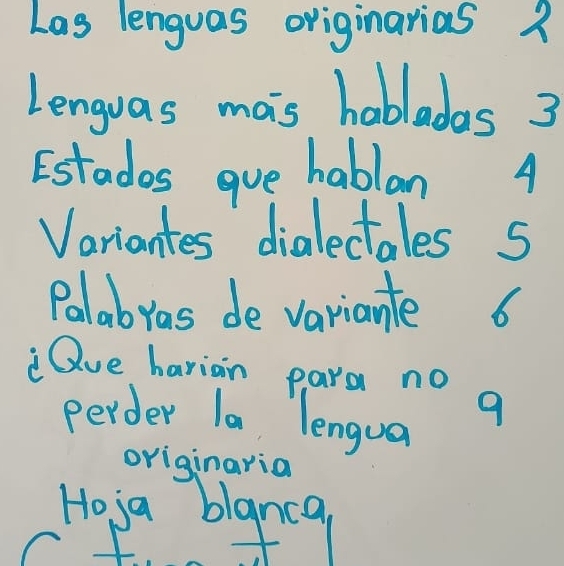 Las lenguas originarias 2
Lenguas más habladas 3
Estados que hablan 4
Variantes dialectales 5
Palabras de variante 6
¿Que harían para no
perder la lengua 9
originaria
Hoja blanca